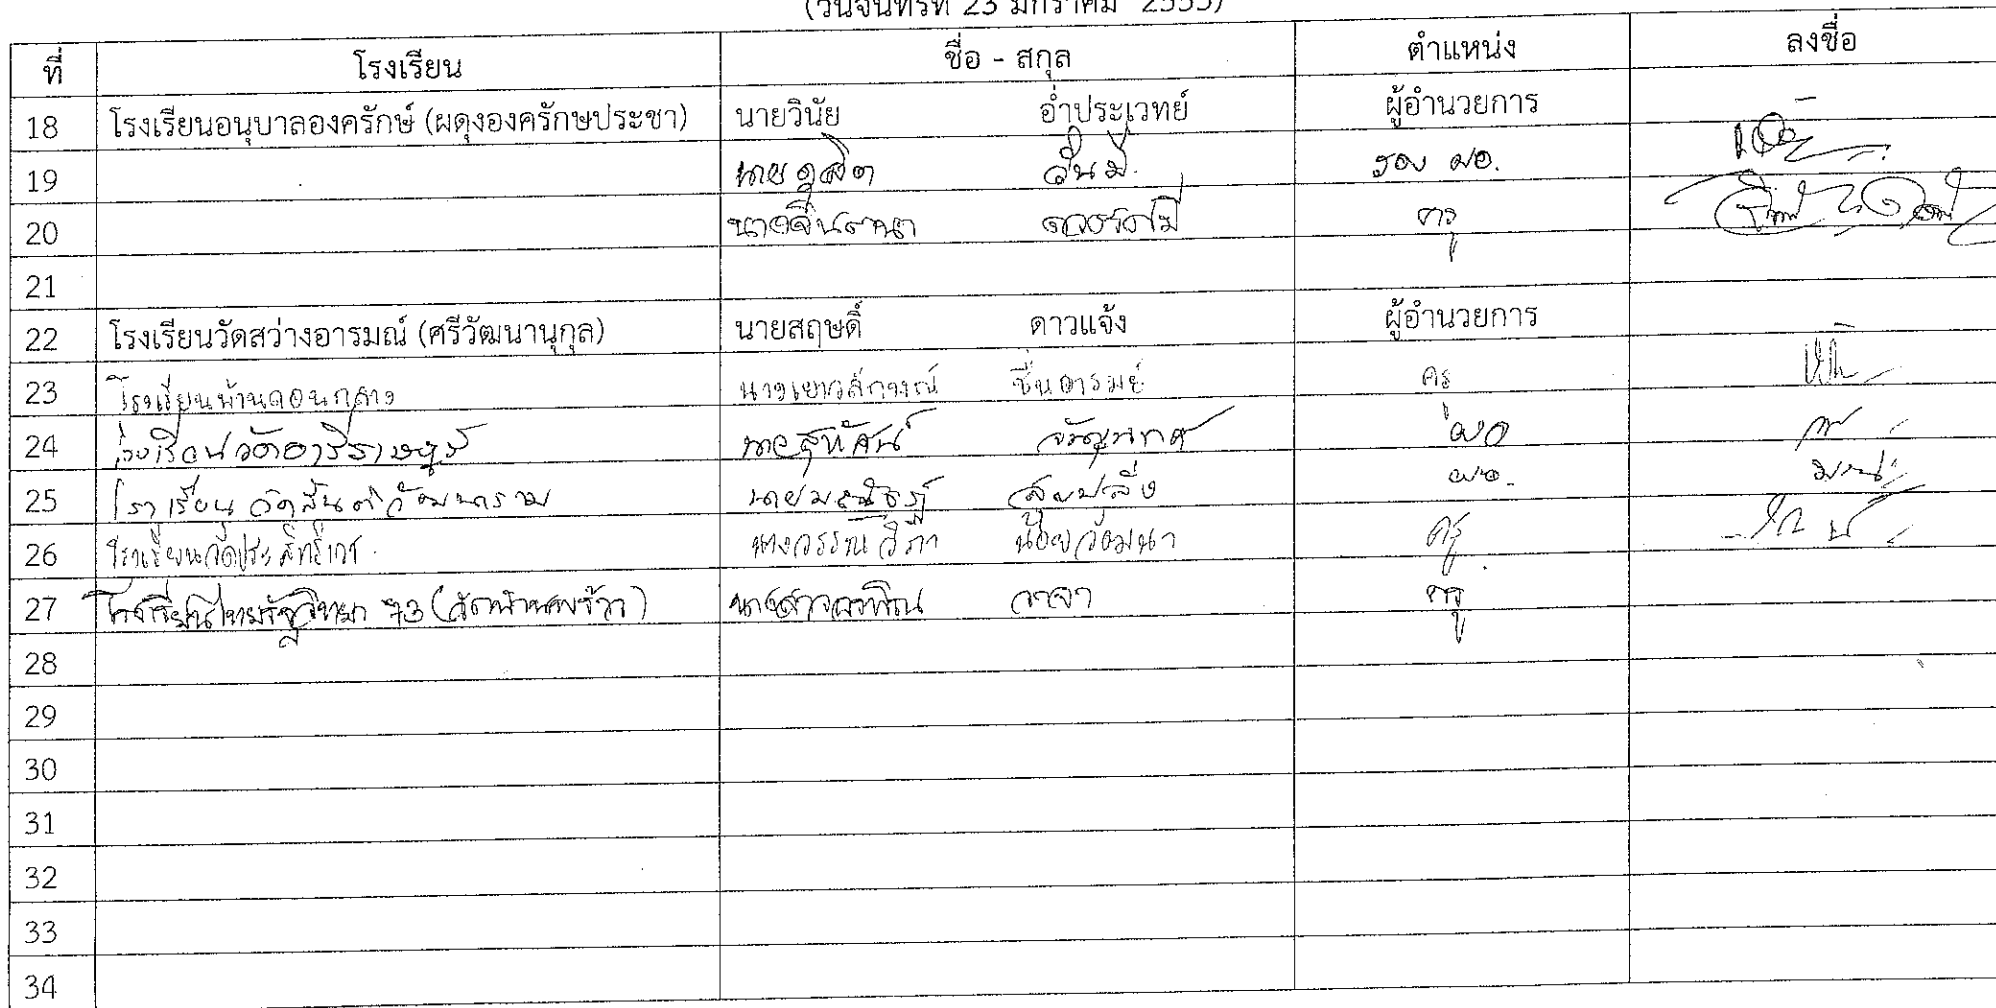 (วันจันทร์ที่ 23 มกราคม 2555)
ที่ โรงเรียน ชื่อ - สกุล ตำแหน่ง ลงชื่อ
18 โรงเรียนอนุบาลองครักษ์ (ผดุงองครักษประชา) นายวินัย อ่ำประเวทย์ ผู้อำนวยการ
19 นายดุสิต รอง ผอ.
20 นางจินตนา ครู
21
22 โรงเรียนวัดสว่างอารมณ์ (ศรีวัฒนานุกูล) นายสฤษดิ์ ดาวแจ้ง ผู้อำนวยการ
23 โรงเรียนบ้านดอนกลาง นางเยาวลักษณ์ ชื่นอารมย์ ครู
24 โรงเรียนวัดอารีราษฎร์ นายสุทัศน์ ผอ
25 โรงเรียน วัดสันตวัฒนาราม ผอ.
26 โรงเรียนวัดประสิทธิเวช นางวรรณวิภา น้อยวัฒนา ครู
27 โรงเรียนไทยรัฐวิทยา 73 นางสาว วาจา ครู
28
29
30
31
32
33
34